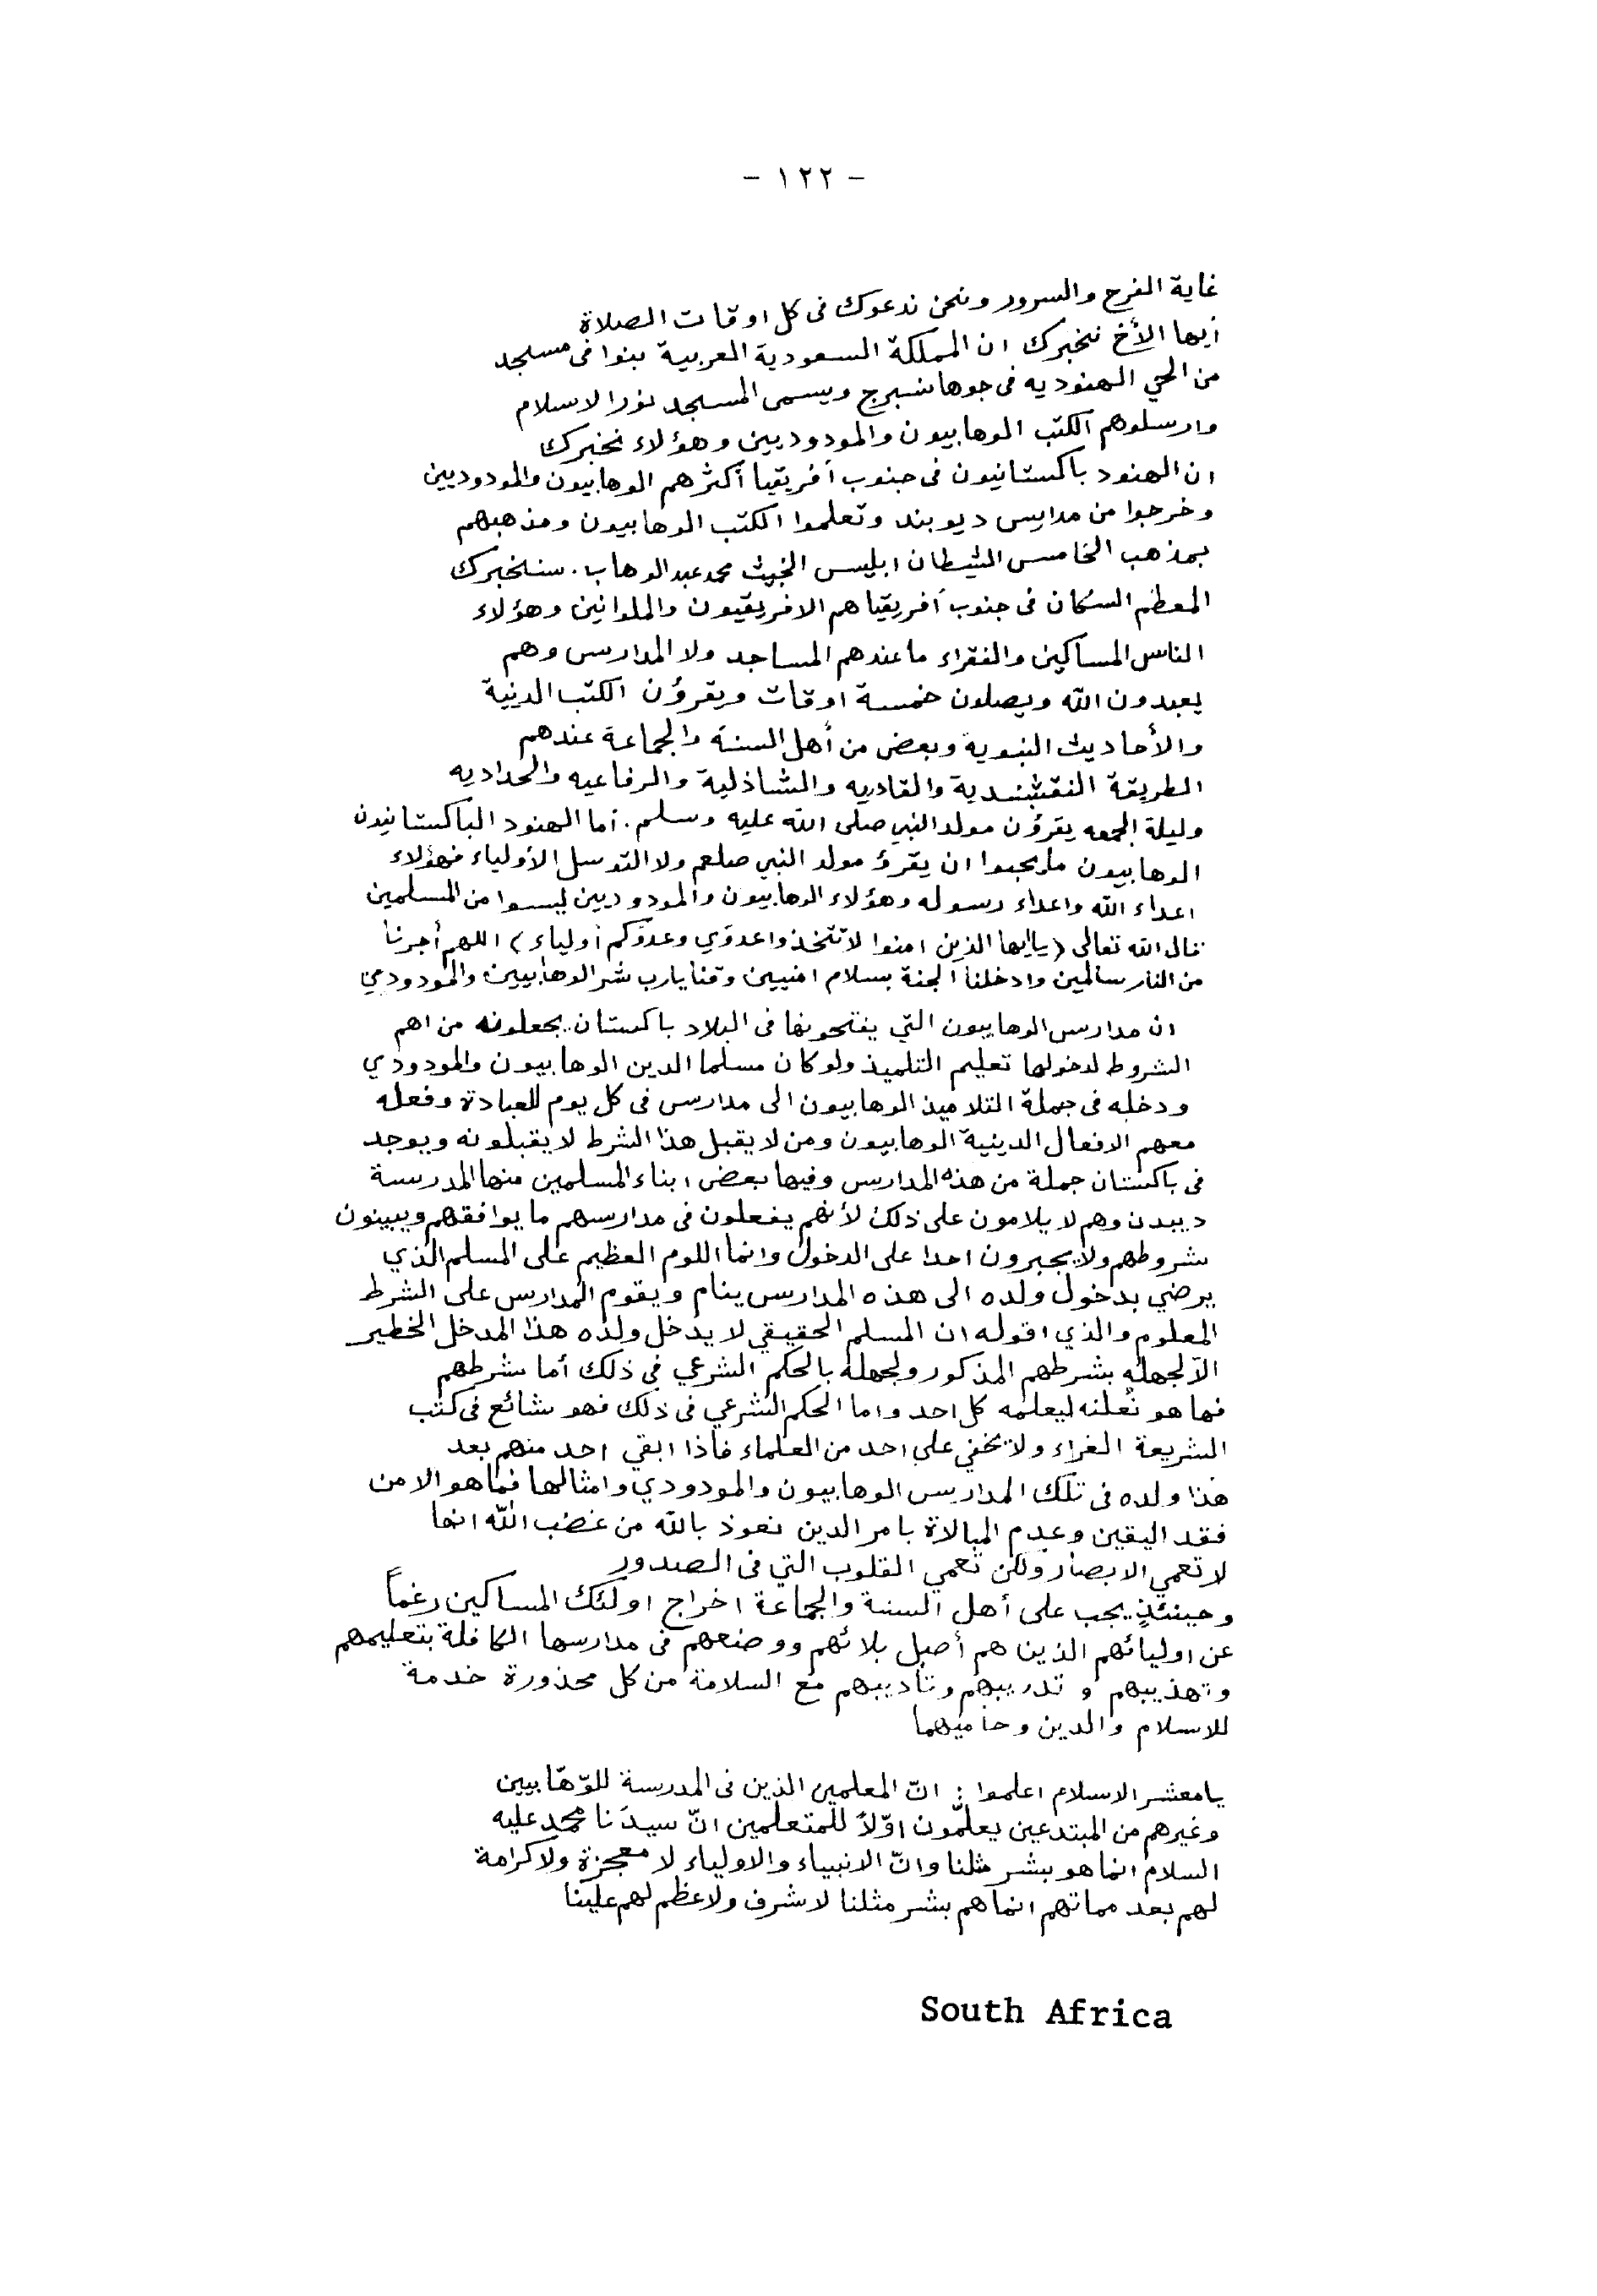 - ١٢٢ -
غاية الفرح والسرور ونحن ندعوك فى كل اوقات الصلاة
أيها الأخ نخبرك ان المملكة السعودية العربية بنوا فى مسجد
من الحي الهنوديه فى جوهانسبرج ويسمى المسجد نور الاسلام
وارسلوهم الكتب الوهابيون والمودوديين وهؤلاء نخبرك
ان الهنود باكستانيون فى جنوب أفريقيا أكثرهم الوهابيون والمودوديين
وخرجوا من مدارس ديوبند وتعلموا الكتب الوهابيون ومذهبهم
بمذهب الخامس الشيطان ابليس الخبيث محمد عبد الوهاب. سنخبرك
المعظم السكان فى جنوب أفريقيا هم الافريقيون والملوانين وهؤلاء
الناس المساكين والفقراء ما عندهم المساجد ولا المدارس وهم
يعبدون الله ويصلون خمسة اوقات ويقرؤن الكتب الدنية
والأحاديث النبويه وبعض من أهل السنة والجماعة عندهم
الطريقة النقشبندية والقادريه والشاذلية والرفاعيه والحداديه
وليلة الجمعه يقرؤن مولد النبي صلى الله عليه وسلم. أما الهنود الباكستانيون
الوهابيون مايحبوا ان يقرؤ مولد النبي صلعم ولا التوسل الأولياء فهؤلاء
اعداء الله واعداء رسوله وهؤلاء الوهابيون والمودوديين ليسوا من المسلمين
قال الله تعالى (ياايها الذين امنوا لا تتخذوا عدوّي وعدوّكم أولياء) اللهم أجرنا
من النار سالمين وادخلنا الجنة بسلام امنيين وقنا يارب شر الوهابيين والمودودي
ان مدارس الوهابيون التي يفتحونها فى البلاد باكستان يجعلونه من اهم
الشروط لدخولها تعليم التلميذ ولو كان مسلما الدين الوهابيون والمودودي
ودخله فى جملة التلاميذ الوهابيون الى مدارس فى كل يوم للعبادة وفعله
معهم الافعال الدينية الوهابيون ومن لا يقبل هذا الشرط لا يقبلونه ويوجد
فى باكستان جملة من هذه المدارس وفيها بعض ابناء المسلمين منها المدرسة
ديبدن وهم لا يلامون على ذلك لأنهم يفعلون فى مدارسهم ما يوافقهم ويبينون
شروطهم ولا يجبرون احدا على الدخول وانما اللوم العظيم على المسلم الذي
يرضي بدخول ولده الى هذه المدارس ينام ويقوم المدارس على الشرط
المعلوم والذي اقوله ان المسلم الحقيقي لا يدخل ولده هذا المدخل الخطير
الّا لجهله بشرطهم المذكور ولجهله بالحكم الشرعي في ذلك أما شرطهم
فها هو نعلنه ليعلمه كل احد واما الحكم الشرعي فى ذلك فهو شائع فى كتب
الشريعة الغراء ولا يخفي على احد من العلماء فاذا ابقي احد منهم بعد
هذا ولده فى تلك المدارس الوهابيون والمودودي وامثالها فما هو الا من
فقد اليقين وعدم المبالاة بامر الدين نعوذ بالله من غضب الله انها
لا تعمي الابصار ولكن تعمي القلوب التي فى الصدور
وحينئذٍ يجب على أهل السنة والجماعة اخراج اولئك المساكين رغماً
عن اوليائهم الذين هم أصل بلائهم ووضعهم فى مدارسها الكافلة بتعليمهم
وتهذيبهم و تدريبهم وتأديبهم مع السلامة من كل محذورة خدمة
للاسلام والدين وحاميهما
يا معشر الاسلام اعلموا : انّ المعلمين الذين فى المدرسة للوّهّابيين
وغيرهم من المبتدعين يعلّمون اوّلاً للمتعلمين انّ سيدَنا محمد عليه
السلام انما هو بشر مثلنا وانّ الانبياء والاولياء لا معجزة ولا كرامة
لهم بعد مماتهم انما هم بشر مثلنا لا شرف ولا عظم لهم علينا
South Africa